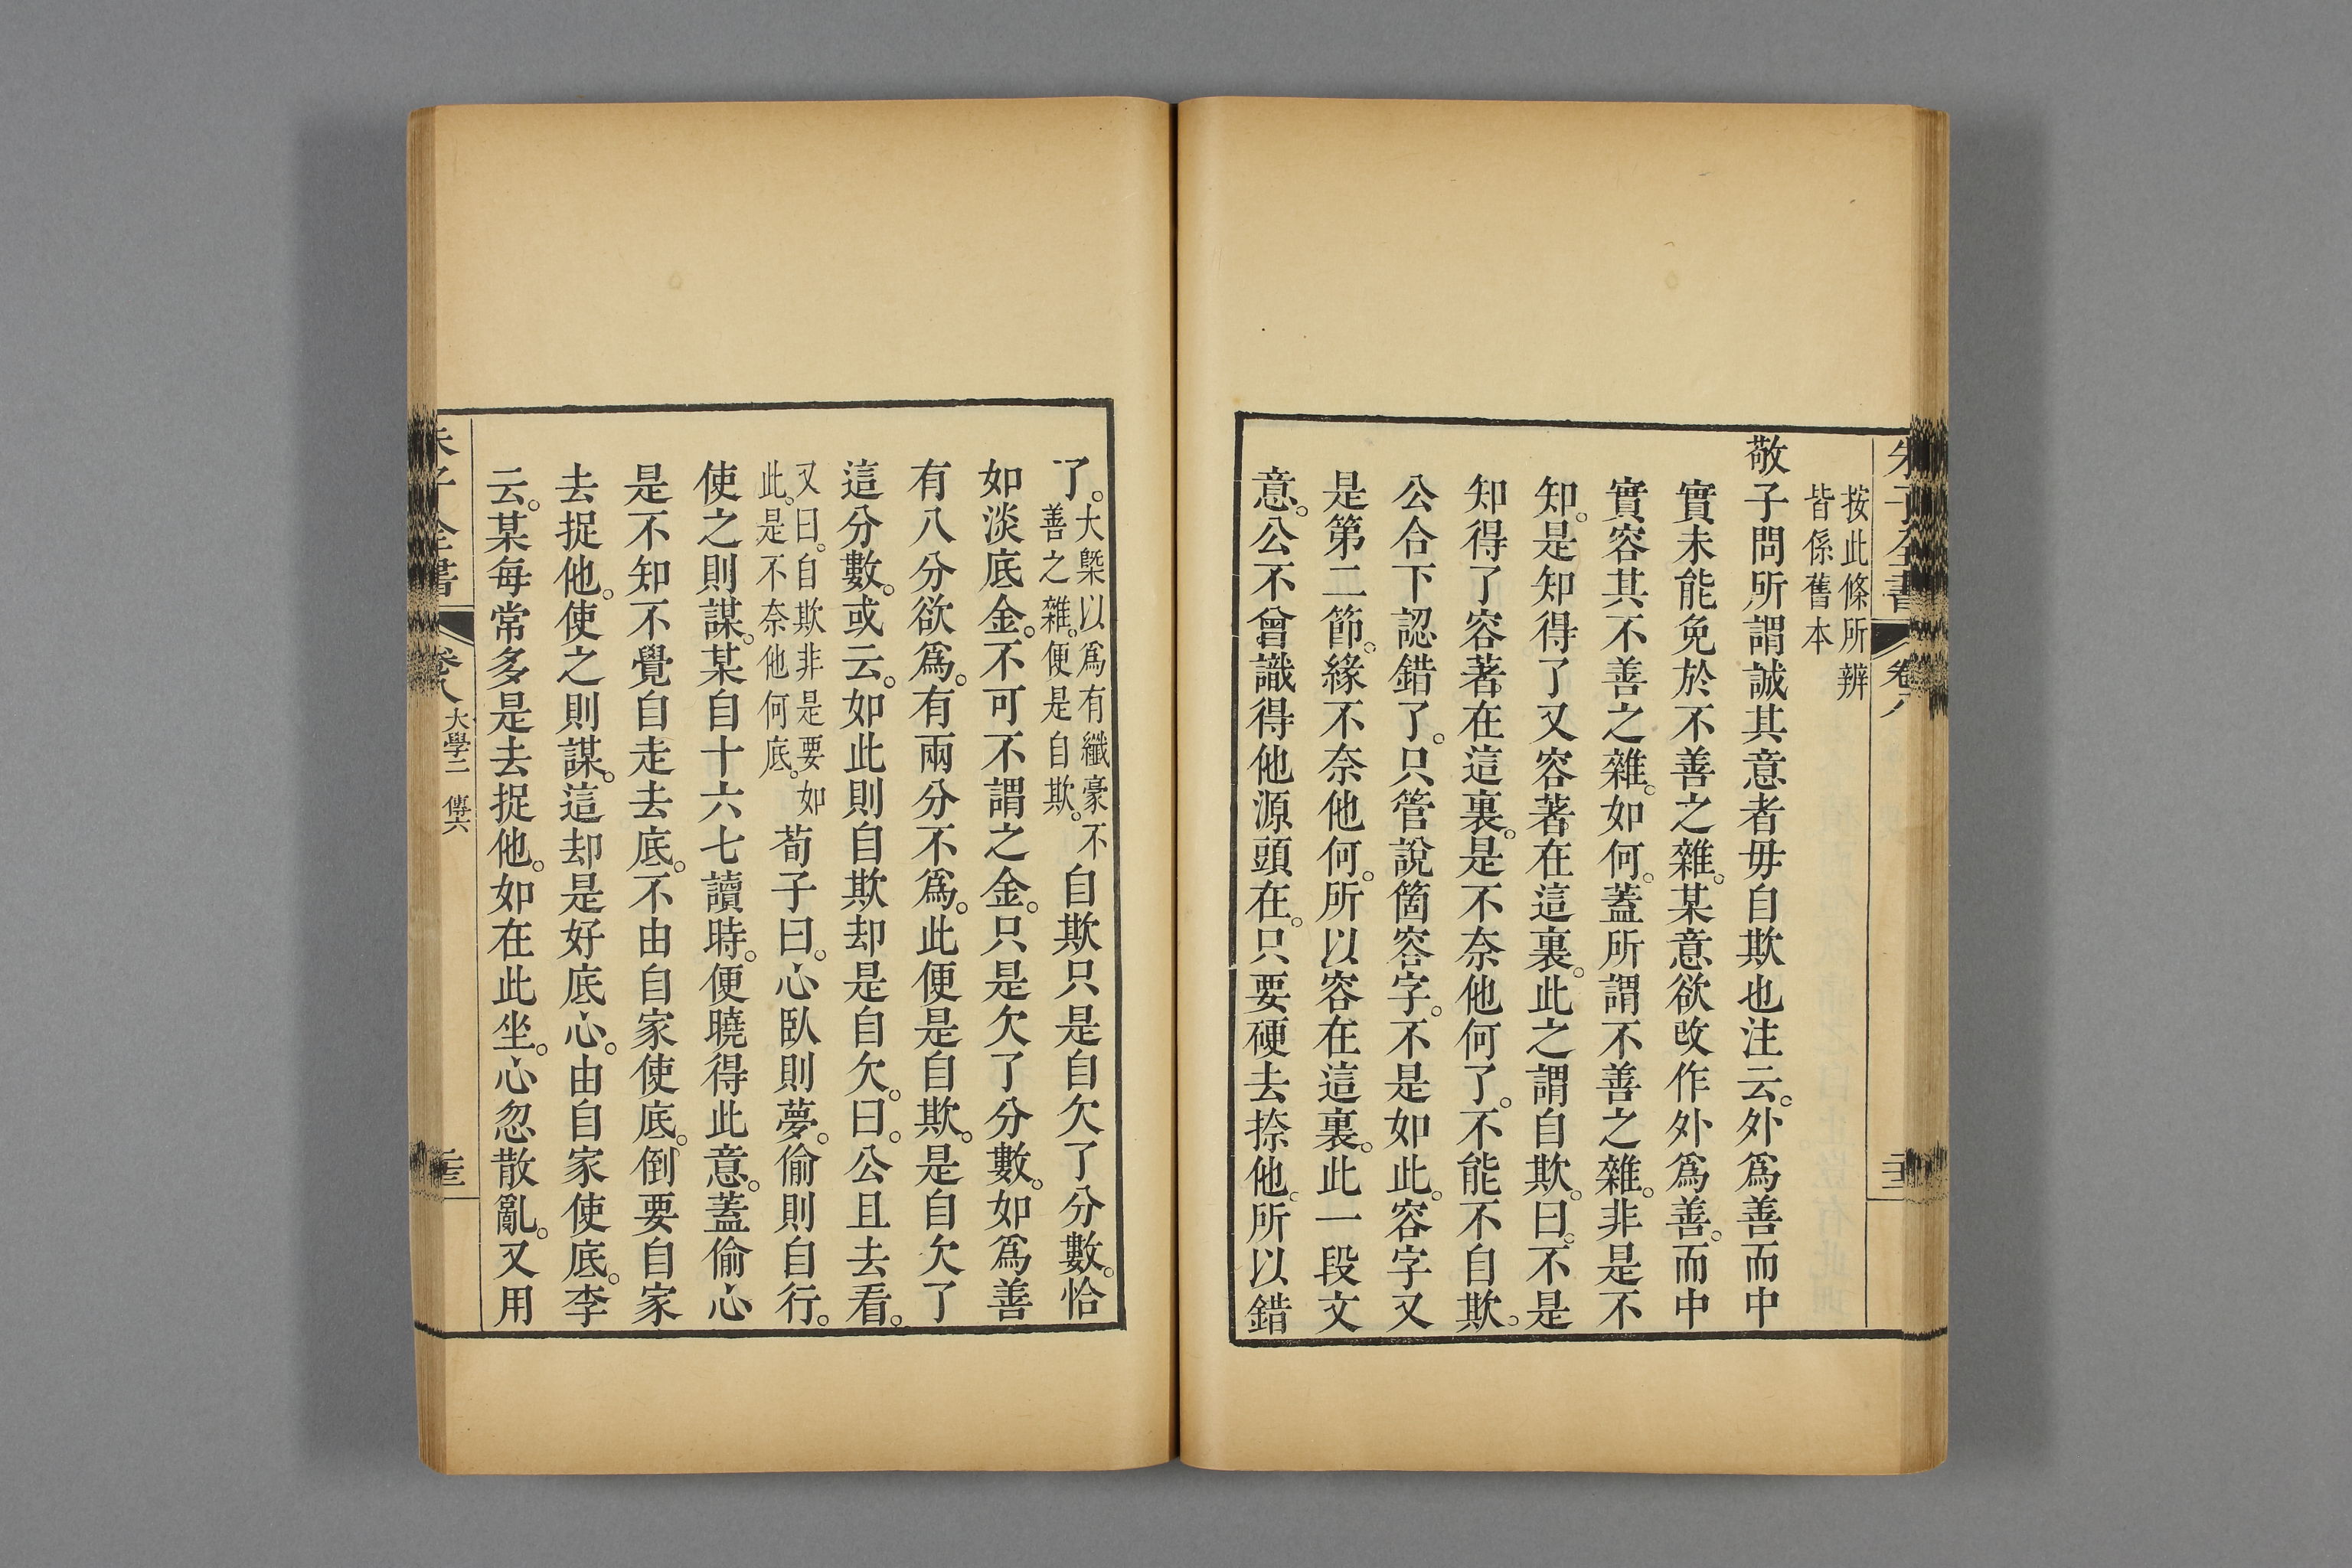 朱子全書 卷八
按此條所辨
皆係舊本
敬子問所謂誠其意者毋自欺也注云。外爲善而中
實未能免於不善之雜。某意欲改作外爲善。而中
實容其不善之雜。如何。蓋所謂不善之雜。非是不
知。是知得了又容著在這裏。此之謂自欺。曰。不是
知得了容著在這裏。是不奈他何了。不能不自欺。
公合下認錯了。只管說箇容字。不是如此。容字又
是第二節。緣不奈他何。所以容在這裏。此一段文
意。公不曾識得他源頭在。只要硬去捺他。所以錯
了。
大槩以爲有纖豪不
善之雜。便是自欺。
自欺只是自欠了分數。恰
如淡底金。不可不謂之金。只是欠了分數。如爲善
有八分欲爲。有兩分不爲。此便是自欺。是自欠了
這分數。或云。如此則自欺却是自欠。曰。公且去看。
又曰。自欺非是要如
此。是不奈他何底。
荀子曰。心臥則夢。偷則自行。
使之則謀。某自十六七讀時。便曉得此意。蓋偷心
是不知不覺自走去底。不由自家使底。倒要自家
去捉他。使之則謀。這却是好底心。由自家使底。李
云。某每常多是去捉他。如在此坐。心忽散亂。又用
朱子全書 卷八 大學二 傳六